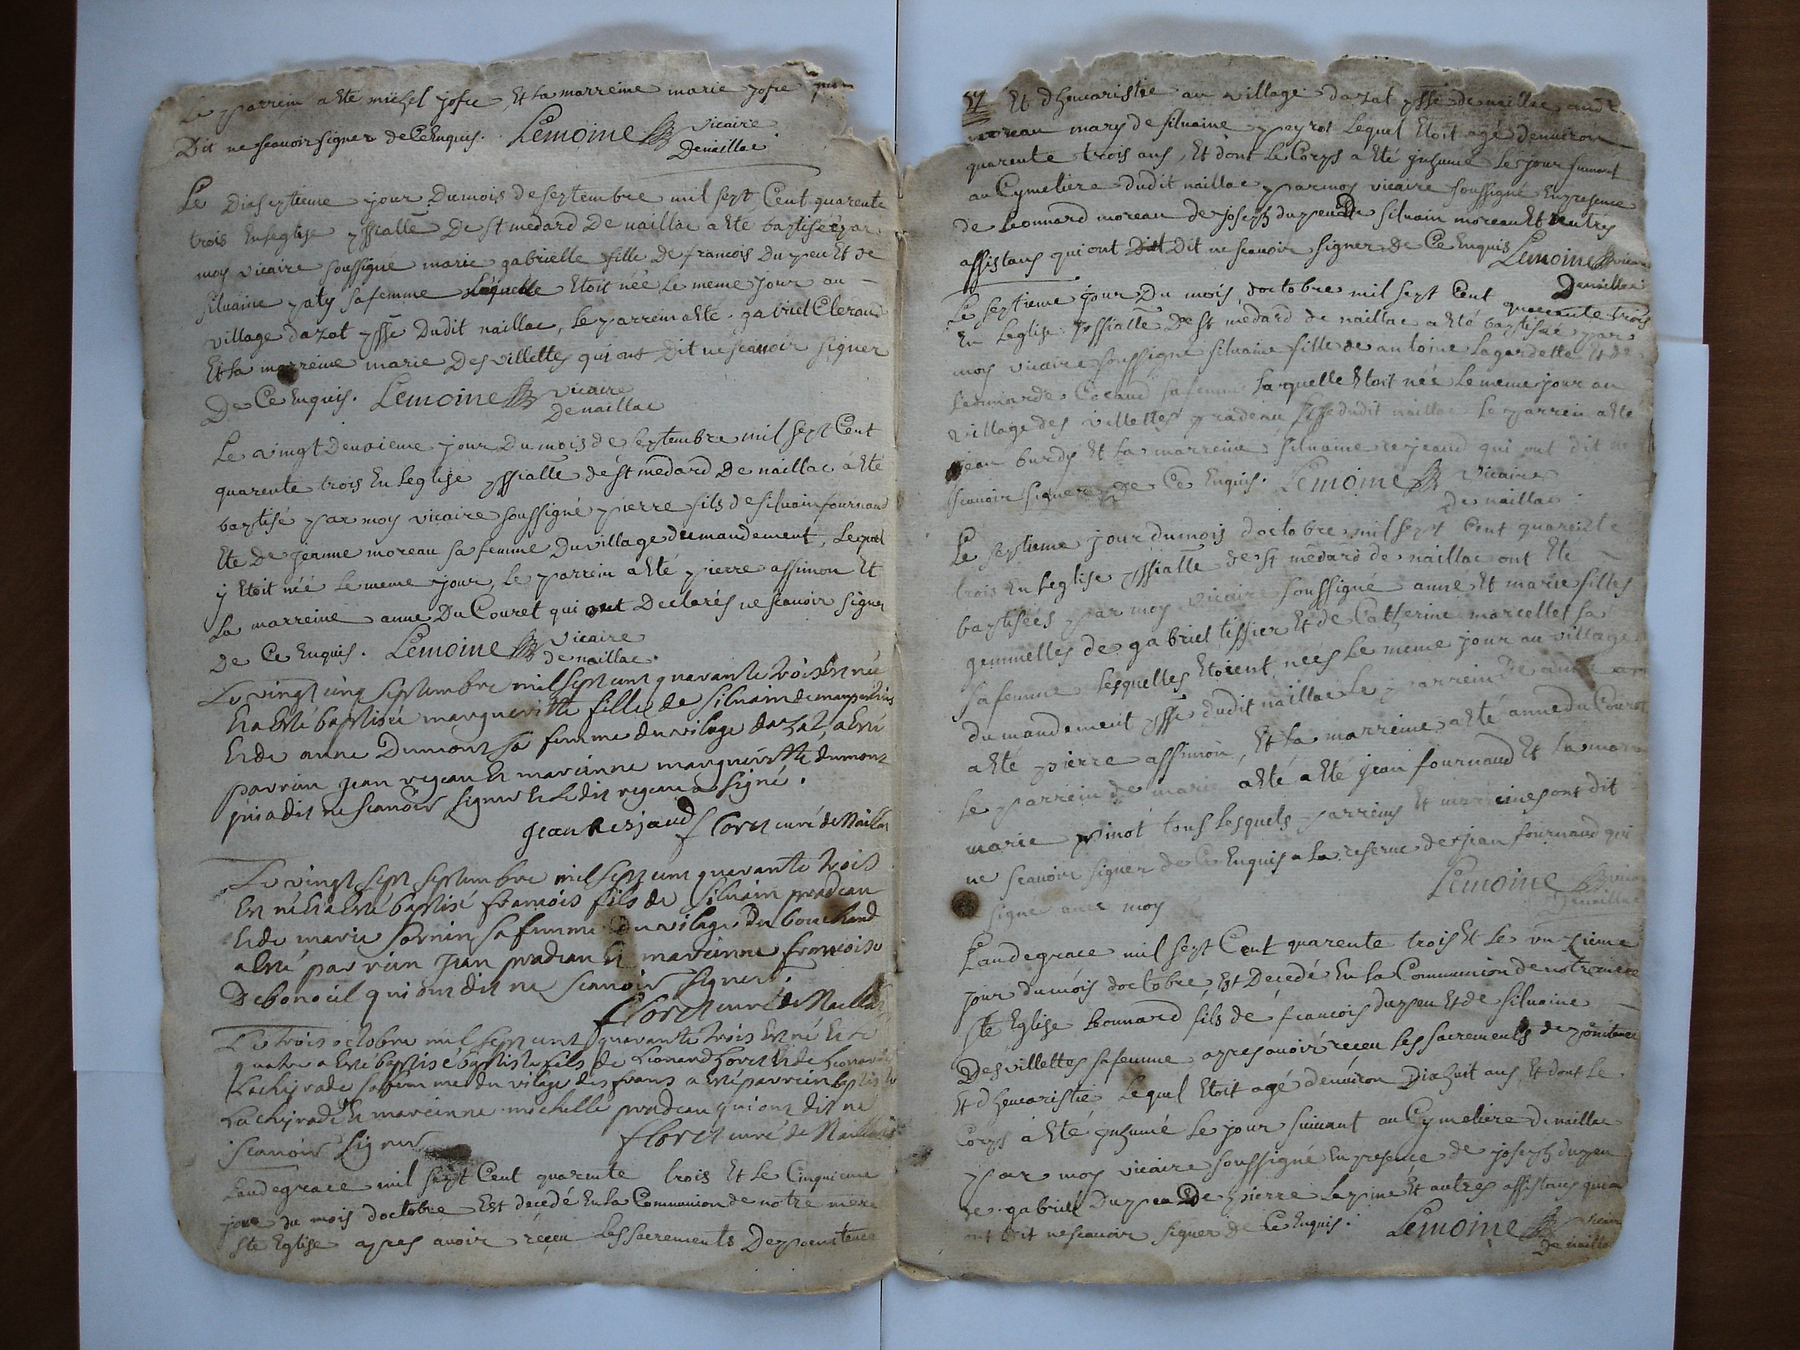 Le parrein a êté michel jofre Et la marreine marie jofre
Dit ne scavoir signer de Ce Enquis. Lemoine vicaire
Denaillac
Le Diaseptieme jour Du mois de septembre mil sept Cent quarente
trois En leglise De st medard De naillac a êté baptisée par
moy vicaire soussigné marie gabrielle fille de francois Dupeu Et de
silvaine paty sa femme laquelle Etoit née Le meme jour au
village dazat Dudit naillac, Le parrein a êté gabriel
Et la marreine marie Desvillettes qui ont Dit ne scavoir signer
De Ce Enquis. Lemoine vicaire
Denaillac
Le vingt deuxieme jour Du mois de septembre mil sept Cent
quarente trois En Leglise de st medard De naillac a êté
baptisé par moy vicaire soussigné pierre fils de silvain fournaud
Et De jeanne moreau sa femme Du village du mandement, Lequel
y Etoit néé Le meme jour, Le parrein a êté pierre assimon Et
La marreine anne Du Couret qui ont Declarés ne scavoir signer
De Ce Enquis. Lemoine vicaire
de naillac.
Le vingt cinq septembre mil sept cent quarante trois Est née
Et a êté baptisée margueritte fille de silvain
Et de anne Dumont sa femme du vilage dazat, a été
parrein jean rejeau Et mareinne margueritte dumont
qui a dit ne scavoir signer Et Ledit rejeau a signé.
jean Rejaud floret curé de Naillac
Le vingt sept septembre mil sept cent quarante trois
Est né Et a été baptisé francois fils de silvain pradeau
Et de marie sornin sa femme du vilage du bouchaud
a été parrein jean pradeau Et mareinne francoise
Debonoeil qui ont dit ne scavoir signer.
floret curé de Naillac
Le trois octobre mil sept cent quarante trois Est né Et le
quatre a été baptisé baptiste fils de Leonard floret Et de
sa femme du vilage des frans a été parrein baptiste
Et mareinne michelle pradeau qui ont dit ne
scavoir signer floret curé de Naillac
Landegrace mil sept Cent quarente trois Et Le Cinquieme
jour du mois doctobre Est decedé En La Communion de notre mere
ste Eglise apres avoir réçeu Les Sacrements De poenitence
57 Et dheucaristie au village dazat de naillac
moreau mary de silvaine peyrot Lequel Etoit agé denviron
quarente trois ans, Et dont Le Corps a êté inhumé Le jour suivant
au Cymetiere dudit naillac par moy vicaire soussigné En presence
de Leonnard moreau de joseph dupeu De silvain moreau Et autres
assistans qui ont Dit ne scavoir signer de Ce Enquis Lemoine vicaire
Denaillac
Le septieme jour Du mois doctobre mil sept Cent quarente trois
En Leglise De st medard de naillac a êté baptisée par
moy vicaire soussigné silvaine fille de antoine Lagardette Et de
Leonnarde sa femme Laquelle Etoit née Le meme jour au
village des villettes pradeau dudit naillac Le parrein a êté
jean burdy Et La marreine silvaine rejeaud qui ont dit ne
scavoir signer De Ce Enquis. Lemoine vicaire
de naillac
Le septieme jour du mois doctobre mil sept Cent quarente
trois En Leglise de st medard de naillac ont êté
baptisées par moy vicaire soussigné anne Et marie filles
gemmelles de gabriel tissier Et de Catherine marcelles sa
sa femme Lesquelles Etoient nees Le meme jour au village
du mandement dudit naillac Le parrein de anne
a êté pierre assimon, Et La marreine a êté anne du Couret
Le parrein de marie a êté a êté jean fournaud Et La
marie pinot tous Lesquels parreins Et marreines ont dit
ne scavoir signer de Ce Enquis a La reserve de jean fournaud qui
signe avec moy Lemoine vicaire
Denaillac
Landegrace mil sept Cent quarente trois Et Le unzieme
jour du mois doctobre, Est Decedé En La Communion de notre mere
ste Eglise Leonnard fils de francois dupeu Et de silvaine
Desvillettes sa femme apres avoir reçeu Les Sacrements de poenitence
Et dheucaristie Lequel Etoit agé denviron Diahuit ans, Et dont Le
Corps a êté inhumé Le jour suivant au Cymetiere de naillac
par moy vicaire soussigné En presence de joseph dupeu
de gabriel Dupeu De pierre Lapine Et autres assistans qui
ont Dit ne scavoir signer de Ce Enquis. Lemoine vicaire
De naillac